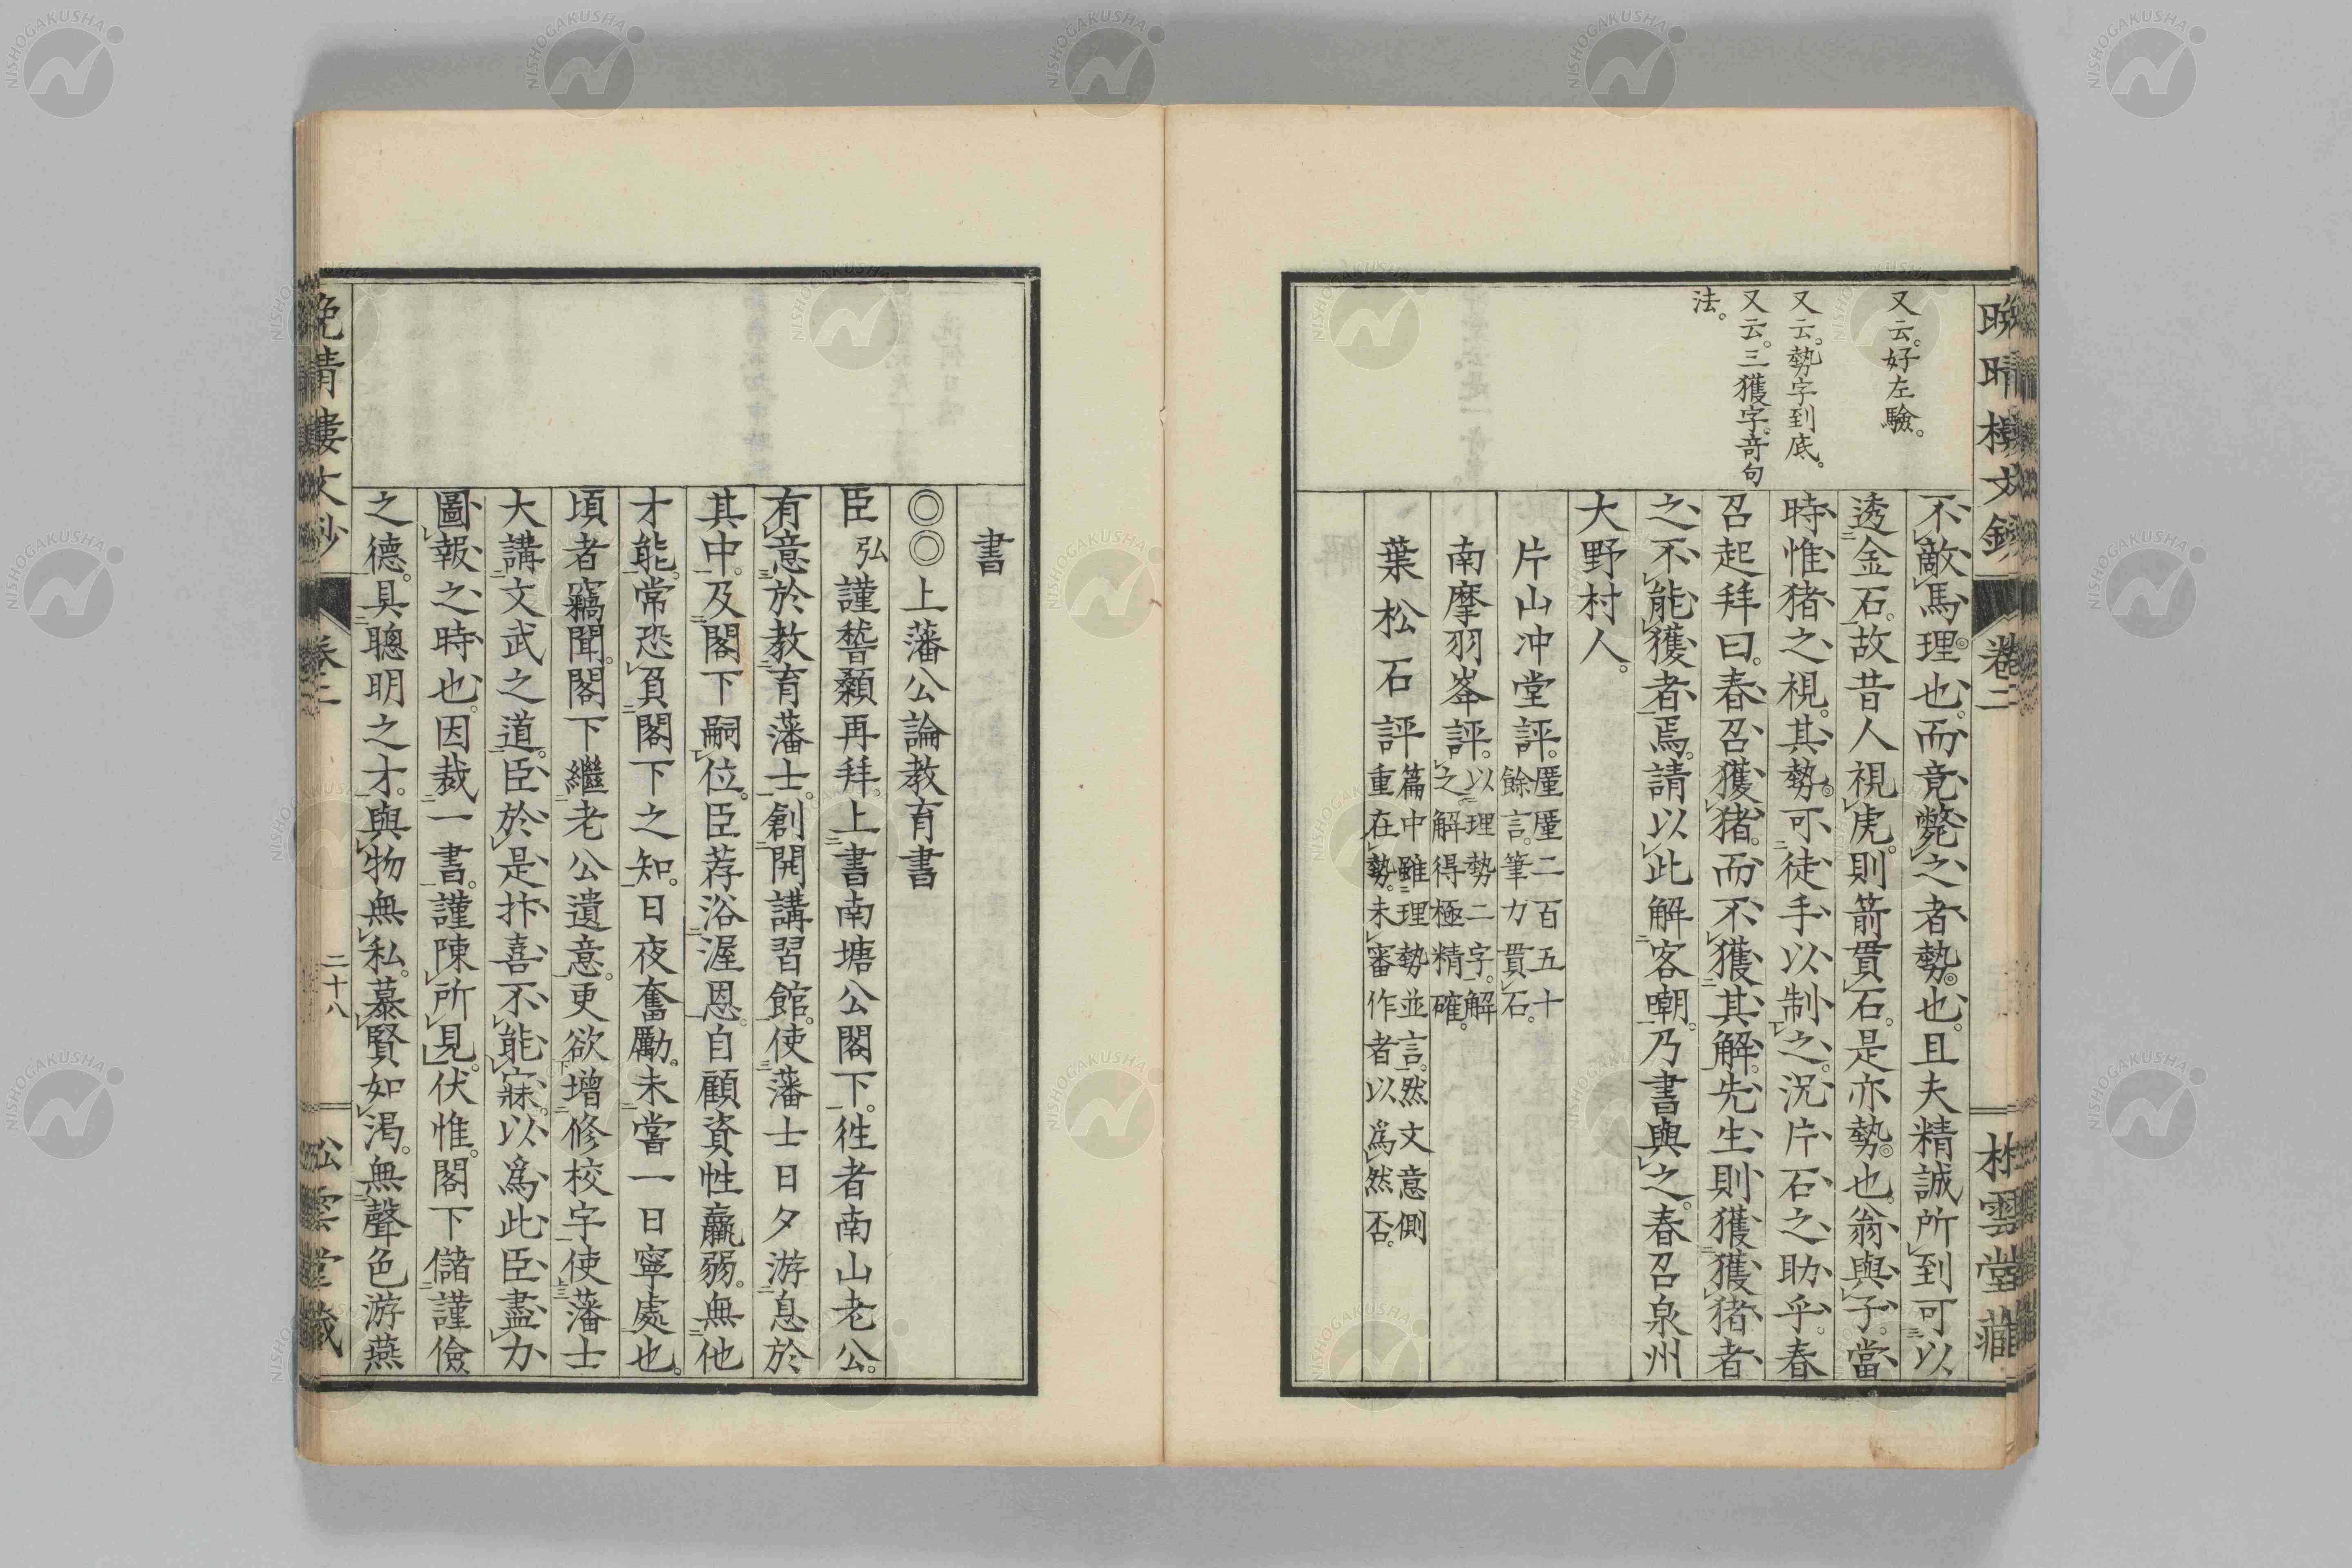 晩晴樓文鈔 卷二 松雲堂藏
又云。好左驗。
又云。勢字到底。
又云。三獲字。奇句
法。
不敵馬。理也。而竟斃之者勢也。且夫精誠所到可以
透金石。故昔人視虎。則箭貫石。是亦勢也。翁與子。當
時惟猪之視。其勢可徒手以制之。況片石之助乎。春
召起拜曰。春召獲猪。而不獲其解。先生則獲獲猪者
之不能獲者焉。請以此解客嘲。乃書與之。春召泉州
大野村人。
片山冲堂評。厪厪二百五十
餘言。筆力貫石。
南摩羽峯評。以理勢二字。解
之解得極精確。
葉松石評 篇中雖理勢並言。然文意側
重在勢。未審作者以爲然否。
書
◎◎上藩公論教育書
臣弘謹稽顙再拜。上書南塘公閣下。徃者南山老公。
有意於教育藩士。創開講習館。使藩士日夕游息於
其中。及閣下嗣位。臣荐浴渥恩。自顧資性羸弱。無他
才能。常恐負閣下之知。日夜奮勵。未嘗一日寧處也。
頃者竊聞。閣下繼老公遺意。更欲增修校字。使藩士
大講文武之道。臣於是抃喜不能寐。以爲此臣盡力
圖報之時也。因裁一書。謹陳所見。伏惟。閣下儲謹儉
之德。具聰明之才。與物無私。慕賢如渴。無聲色游燕
晩晴樓文鈔 卷二 二十八 松雲堂藏